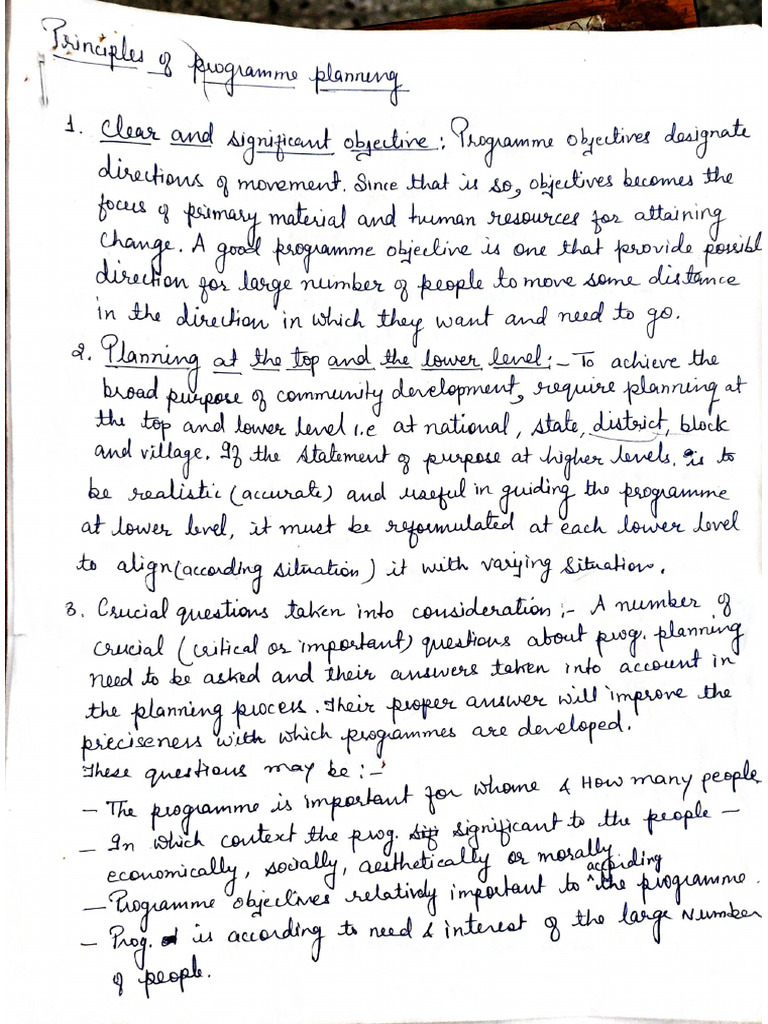 Principles of programme planning
1. Clear and significant objective: Programme objectives designate
directions of movement. Since that is so, objectives becomes the
focus of primary material and human resources for attaining
change. A good programme objective is one that provide possibl
direction for large number of people to move some distance
in the direction in which they want and need to go.
2. Planning at the top and the lower level:- To achieve the
broad purpose of community development, require planning at
the top and lower level i.e at national, state, district, block
and village. If the statement of purpose at higher levels. is to
be realistic (accurate) and useful in guiding the programme
at lower level, it must be reformulated at each lower level
to align (according situation) it with varying situation.
3. Crucial questions taken into consideration:- A number of
crucial (critical or important) questions about prog. planning
need to be asked and their answers taken into account in
the planning process. Their proper answer will improve the
preciseness with which programmes are developed.
These questions may be:-
- The programme is important for whome & How many people
- In which context the prog. significant to the people -
economically, socially, aesthetically or morally
- Programme objectives relatively important to according the programme.
- Prog. is according to need & interest of the large Number
of people.